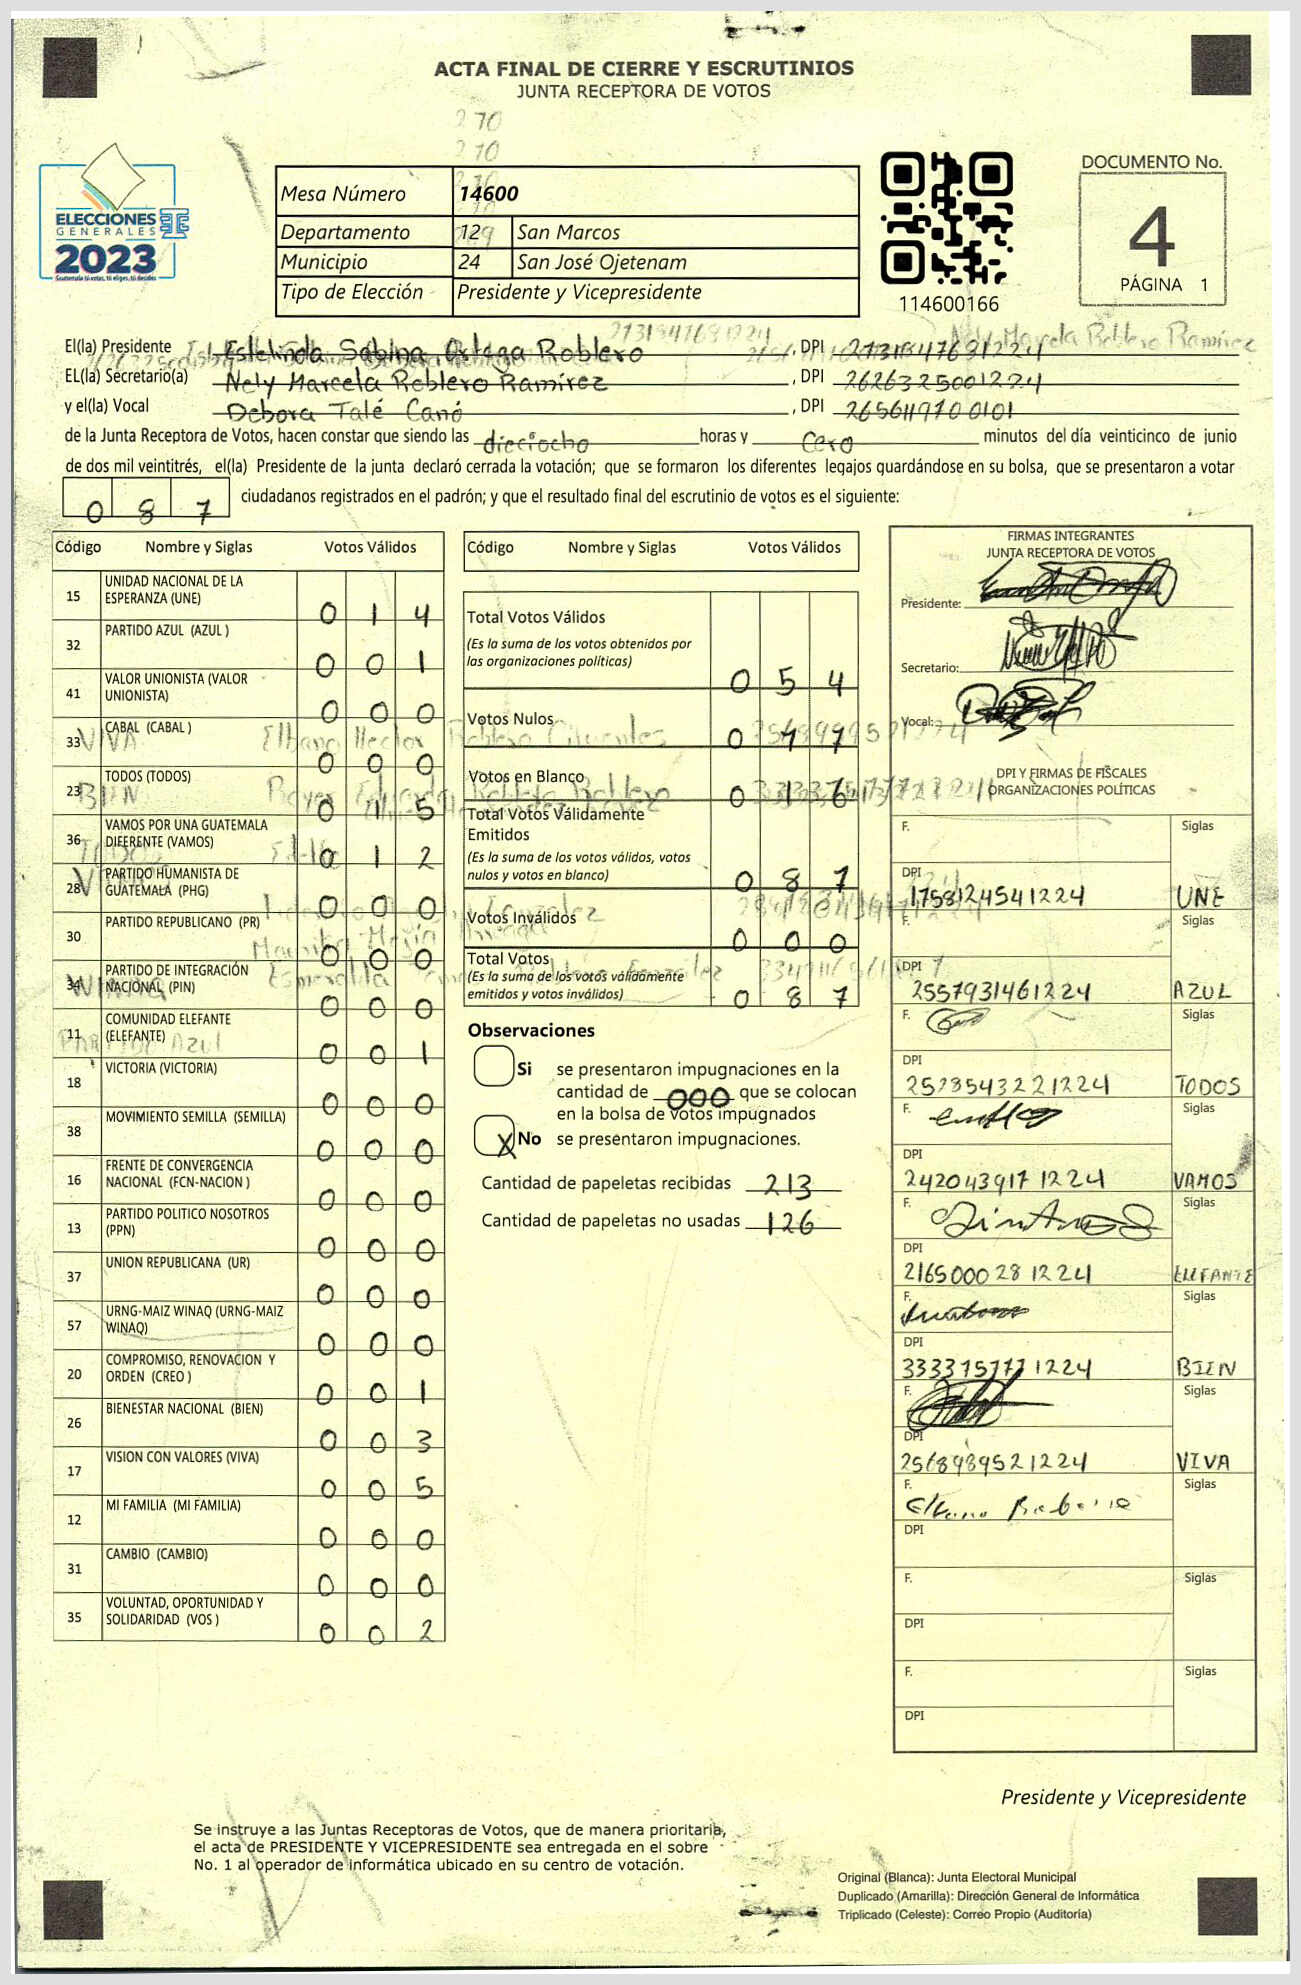 ACTA FINAL DE CIERRE Y ESCRUTINIOS
JUNTA RECEPTORA DE VOTOS
270
270
ELECCIONES
GENERALES
2023
Guatemala tú votas, tú eliges, tú decides
Mesa Número 14600
Departamento 12 San Marcos
Municipio 24 San José Ojetenam
Tipo de Elección Presidente y Vicepresidente
114600166
DOCUMENTO No.
4
PÁGINA 1
El(la) Presidente Estelinda Sabina Ortega Roblero, DPI 2731847681224
EL(la) Secretario(a) Nely Marcela Roblero Ramírez, DPI 2626325001224
y el(la) Vocal Debora Talé Canó, DPI 2656119700101
de la Junta Receptora de Votos, hacen constar que siendo las dieciocho horas y cero minutos del día veinticinco de junio
de dos mil veintitrés, el(la) Presidente de la junta declaró cerrada la votación; que se formaron los diferentes legajos guardándose en su bolsa, que se presentaron a votar
087 ciudadanos registrados en el padrón; y que el resultado final del escrutinio de votos es el siguiente:
Código Nombre y Siglas Votos Válidos
15 UNIDAD NACIONAL DE LA ESPERANZA (UNE) 0 1 4
32 PARTIDO AZUL (AZUL ) 0 0 1
41 VALOR UNIONISTA (VALOR UNIONISTA) 0 0 0
33 CABAL (CABAL ) 0 0 0
23 TODOS (TODOS) 0 1 5
36 VAMOS POR UNA GUATEMALA DIFERENTE (VAMOS) 0 1 2
28 PARTIDO HUMANISTA DE GUATEMALA (PHG) 0 0 0
30 PARTIDO REPUBLICANO (PR) 0 0 0
34 PARTIDO DE INTEGRACIÓN NACIONAL (PIN) 0 0 0
11 COMUNIDAD ELEFANTE (ELEFANTE) 0 0 1
18 VICTORIA (VICTORIA) 0 0 0
38 MOVIMIENTO SEMILLA (SEMILLA) 0 0 0
16 FRENTE DE CONVERGENCIA NACIONAL (FCN-NACION ) 0 0 0
13 PARTIDO POLITICO NOSOTROS (PPN) 0 0 0
37 UNION REPUBLICANA (UR) 0 0 0
57 URNG-MAIZ WINAQ (URNG-MAIZ WINAQ) 0 0 0
20 COMPROMISO, RENOVACION Y ORDEN (CREO ) 0 0 1
26 BIENESTAR NACIONAL (BIEN) 0 0 3
17 VISION CON VALORES (VIVA) 0 0 5
12 MI FAMILIA (MI FAMILIA) 0 0 0
31 CAMBIO (CAMBIO) 0 0 0
35 VOLUNTAD, OPORTUNIDAD Y SOLIDARIDAD (VOS ) 0 0 2
Código Nombre y Siglas Votos Válidos
Total Votos Válidos
(Es la suma de los votos obtenidos por
las organizaciones políticas) 0 5 4
Votos Nulos 0 1 7
Votos en Blanco 0 1 6
Total Votos Válidamente
Emitidos
(Es la suma de los votos válidos, votos
nulos y votos en blanco) 0 8 7
Votos Inválidos 0 0 0
Total Votos
(Es la suma de los votos válidamente
emitidos y votos inválidos) 0 8 7
Observaciones
Si se presentaron impugnaciones en la
cantidad de 000 que se colocan
en la bolsa de votos impugnados
X No se presentaron impugnaciones.
Cantidad de papeletas recibidas 213
Cantidad de papeletas no usadas 126
FIRMAS INTEGRANTES
JUNTA RECEPTORA DE VOTOS
Presidente:
Secretario:
Vocal:
DPI Y FIRMAS DE FISCALES
ORGANIZACIONES POLÍTICAS
F. Siglas
DPI 1758124541224 UNE
F. Siglas
DPI 2557931461224 AZUL
F. Siglas
DPI 2523543221224 TODOS
F. Siglas
DPI 2420439171224 VAMOS
F. Siglas
DPI 2165000281224 ELEFANTE
F. Siglas
DPI 3333757771224 BIEN
F. Siglas
DPI 2568989521224 VIVA
F. Siglas
DPI
F. Siglas
DPI
F. Siglas
DPI
Presidente y Vicepresidente
Se instruye a las Juntas Receptoras de Votos, que de manera prioritaria,
el acta de PRESIDENTE Y VICEPRESIDENTE sea entregada en el sobre
No. 1 al operador de informática ubicado en su centro de votación.
Original (Blanca): Junta Electoral Municipal
Duplicado (Amarilla): Dirección General de Informática
Triplicado (Celeste): Correo Propio (Auditoría)